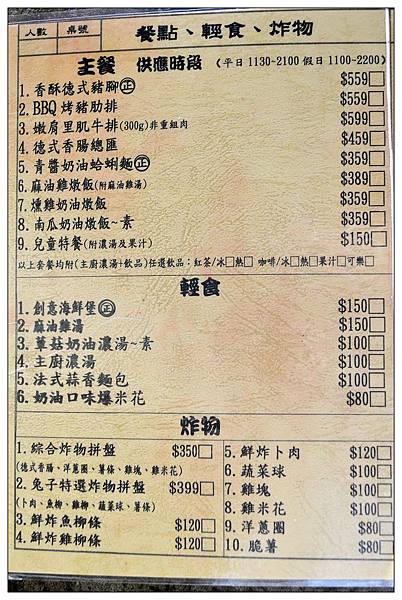 人數 桌號 餐點、輕食、炸物
主餐 供應時段 (平日 1130~2100 假日 1100~2200)
1. 香酥德式豬腳㊣ $559□
2. BBQ 烤豬肋排 $559□
3. 嫩肩里肌牛排(300g)非重組肉 $599□
4. 德式香腸總匯 $459□
5. 青醬奶油蛤蜊麵㊣ $359□
6. 麻油雞燉飯(附麻油雞湯) $389□
7. 燻雞奶油燉飯 $359□
8. 南瓜奶油燉飯~素 $359□
9. 兒童特餐(附濃湯及果汁) $150□
以上套餐均附(主廚濃湯+飲品)任選飲品：紅茶/冰□熱□ 咖啡/冰□熱□果汁□可樂□
輕食
1. 創意海鮮堡㊣ $150□
2. 麻油雞湯 $150□
3. 蕈菇奶油濃湯~素 $100□
4. 主廚濃湯 $100□
5. 法式蒜香麵包 $100□
6. 奶油口味爆米花 $80□
炸物
1. 綜合炸物拼盤 $350□
(德式香腸、洋蔥圈、薯條、雞塊、雞米花)
2. 兔子特選炸物拼盤 $399□
(卜肉、魚柳、雞柳、蔬菜球、薯條)
3. 鮮炸魚柳條 $120□
4. 鮮炸雞柳條 $120□
5. 鮮炸卜肉 $120□
6. 蔬菜球 $100□
7. 雞塊 $100□
8. 雞米花 $100□
9. 洋蔥圈 $80□
10. 脆薯 $80□